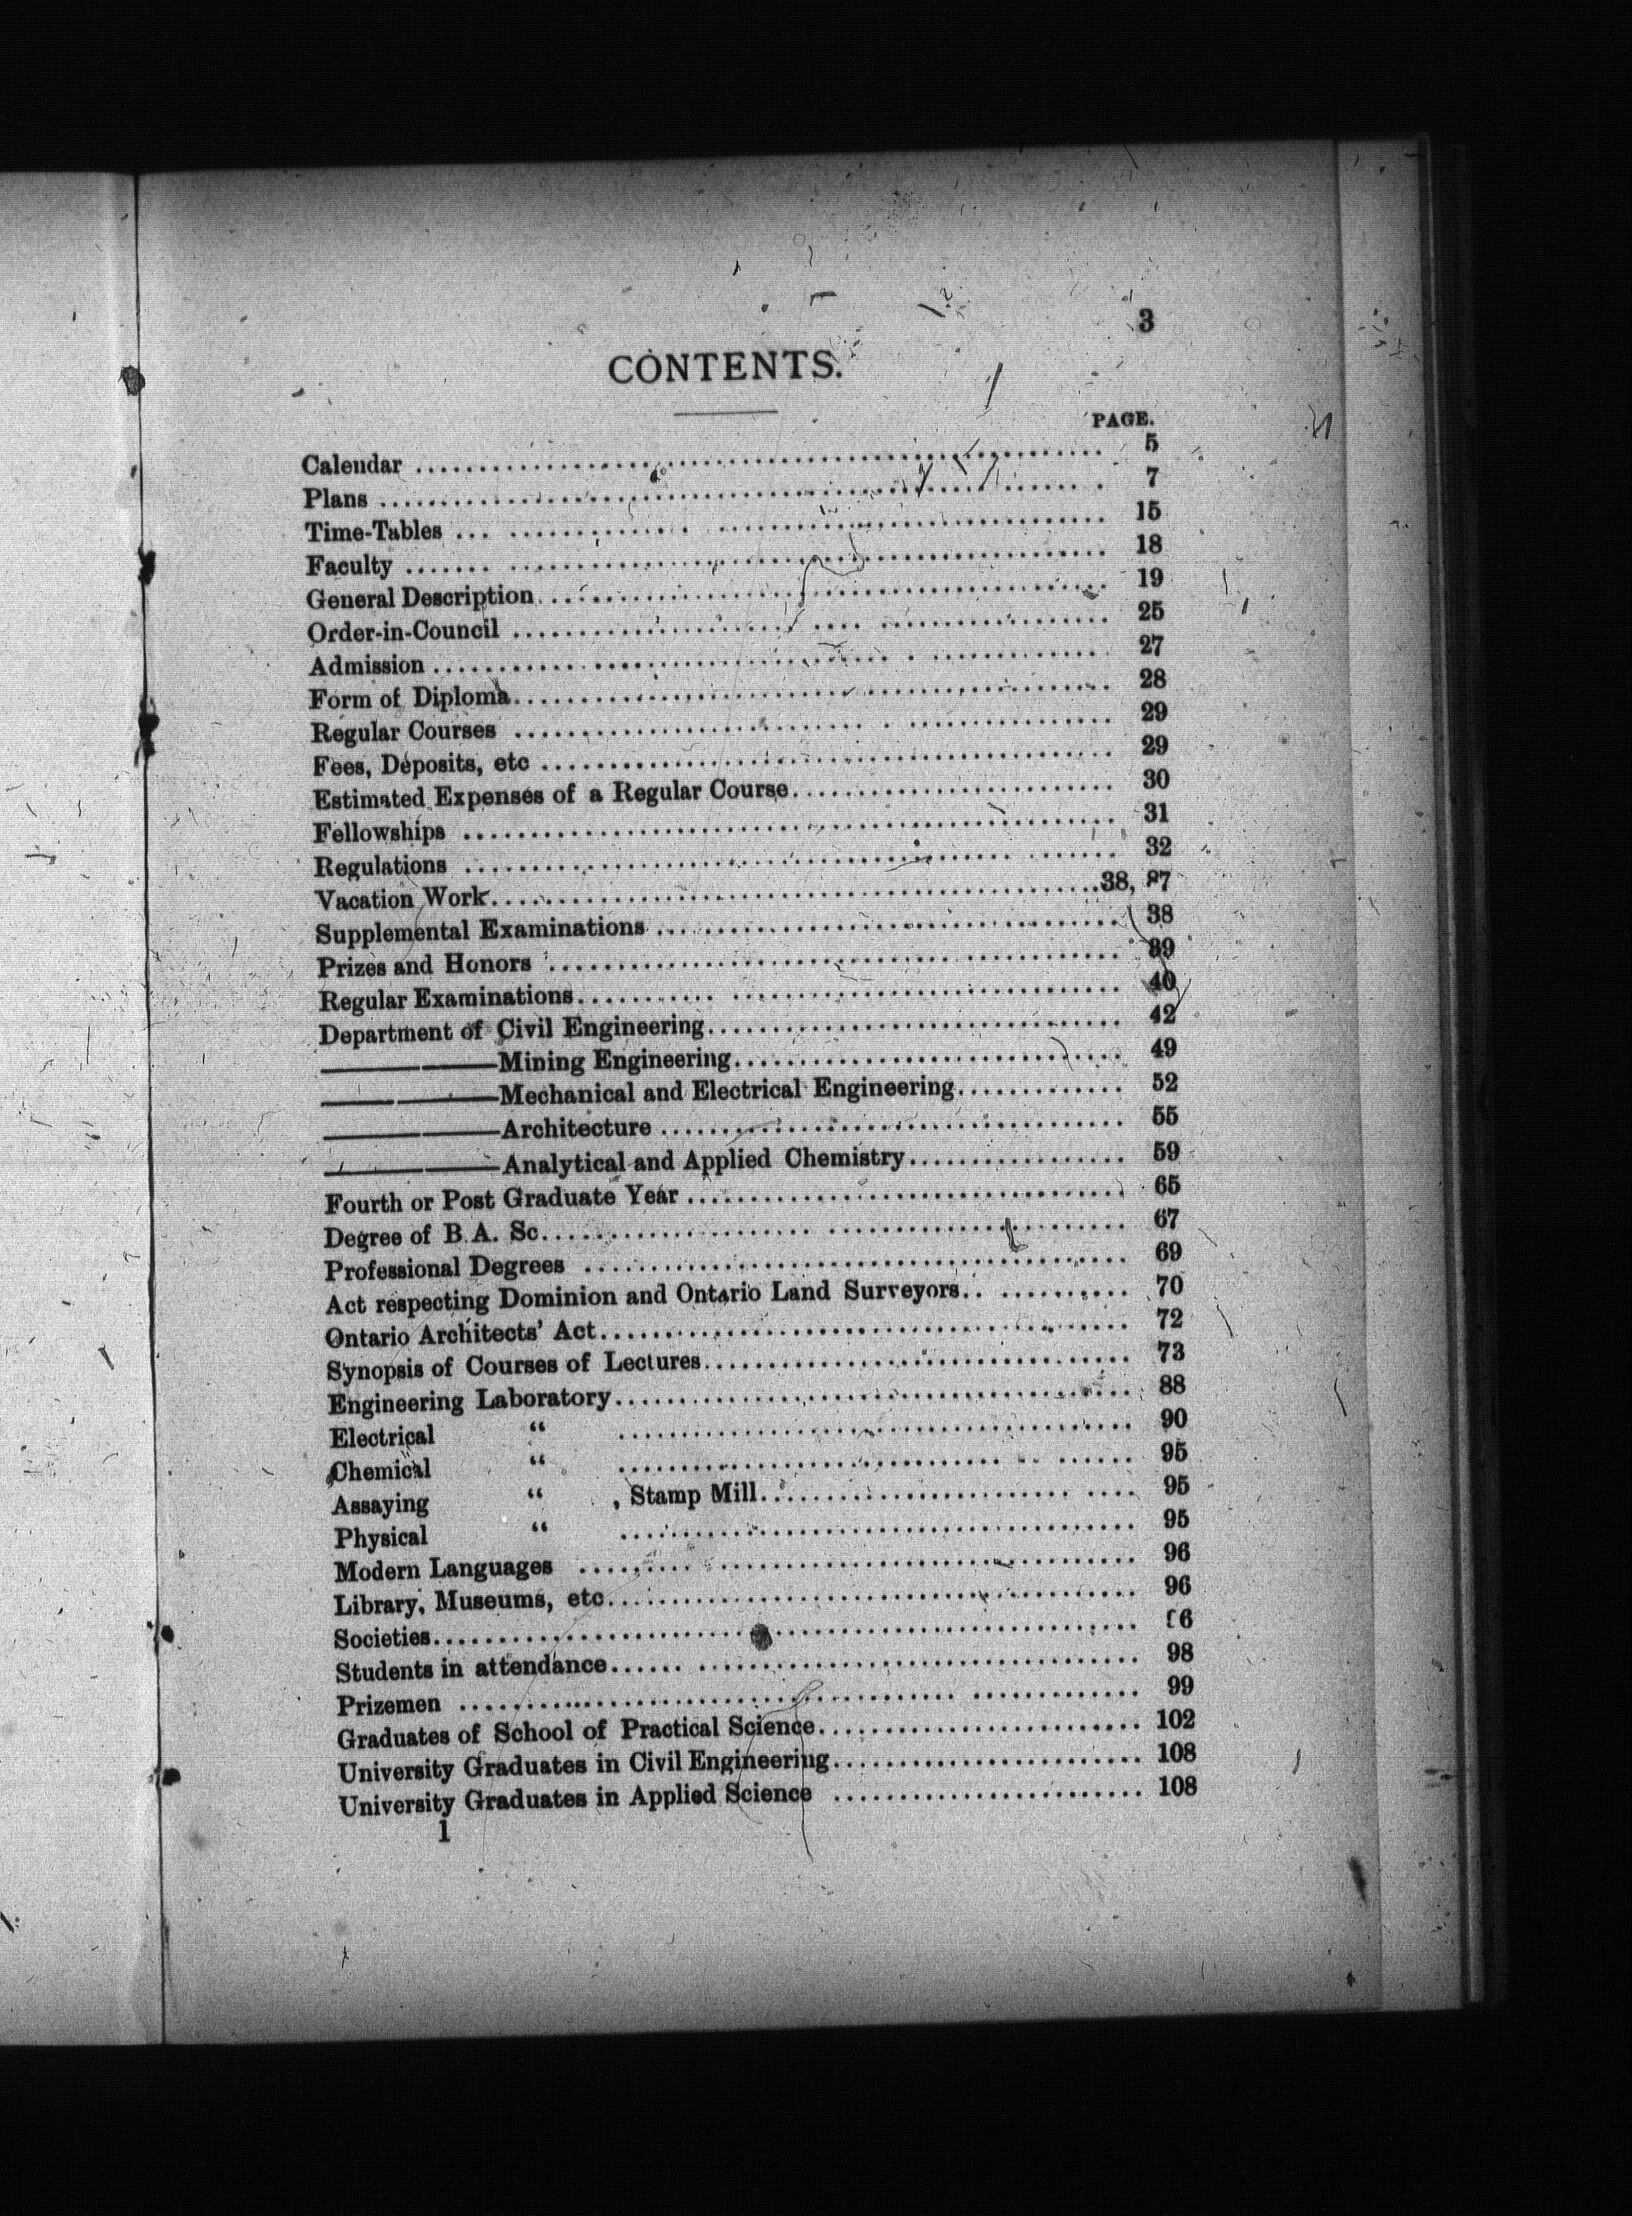 3
CONTENTS.
PAGE.
Calendar ........ 5
Plans ........ 7
Time-Tables ........ 15
Faculty ........ 18
General Description ........ 19
Order-in-Council ........ 25
Admission ........ 27
Form of Diploma ........ 28
Regular Courses ........ 29
Fees, Deposits, etc ........ 29
Estimated Expenses of a Regular Course ........ 30
Fellowships ........ 31
Regulations ........ 32
Vacation Work ........ 38, 87
Supplemental Examinations ........ 38
Prizes and Honors ........ 39
Regular Examinations ........ 40
Department of Civil Engineering ........ 42
—— ——Mining Engineering ........ 49
—— ——Mechanical and Electrical Engineering ........ 52
—— ——Architecture ........ 55
—— ——Analytical and Applied Chemistry ........ 59
Fourth or Post Graduate Year ........ 65
Degree of B.A. Sc ........ 67
Professional Degrees ........ 69
Act respecting Dominion and Ontario Land Surveyors ........ 70
Ontario Architects' Act ........ 72
Synopsis of Courses of Lectures ........ 73
Engineering Laboratory ........ 88
Electrical “ ........ 90
Chemical “ ........ 95
Assaying “ , Stamp Mill ........ 95
Physical “ ........ 95
Modern Languages ........ 96
Library, Museums, etc ........ 96
Societies ........ 96
Students in attendance ........ 98
Prizemen ........ 99
Graduates of School of Practical Science ........ 102
University Graduates in Civil Engineering ........ 108
University Graduates in Applied Science ........ 108
1